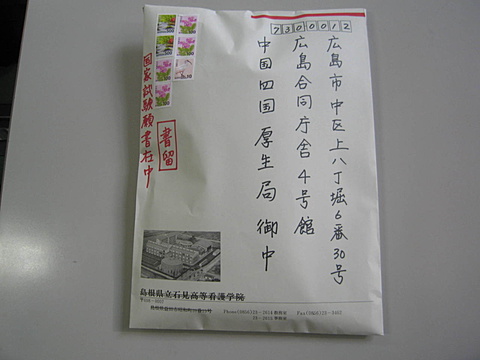 7300012
広島市中区上八丁堀6番30号
広島合同庁舎4号館
中国四国厚生局 御中
国家試験願書在中
書留
島根県立石見高等看護学院